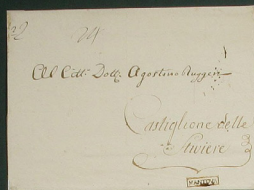 Al Citt.: Dott.: Agostino Ruggeri
Castiglione delle
Stiviere
MANTOVA